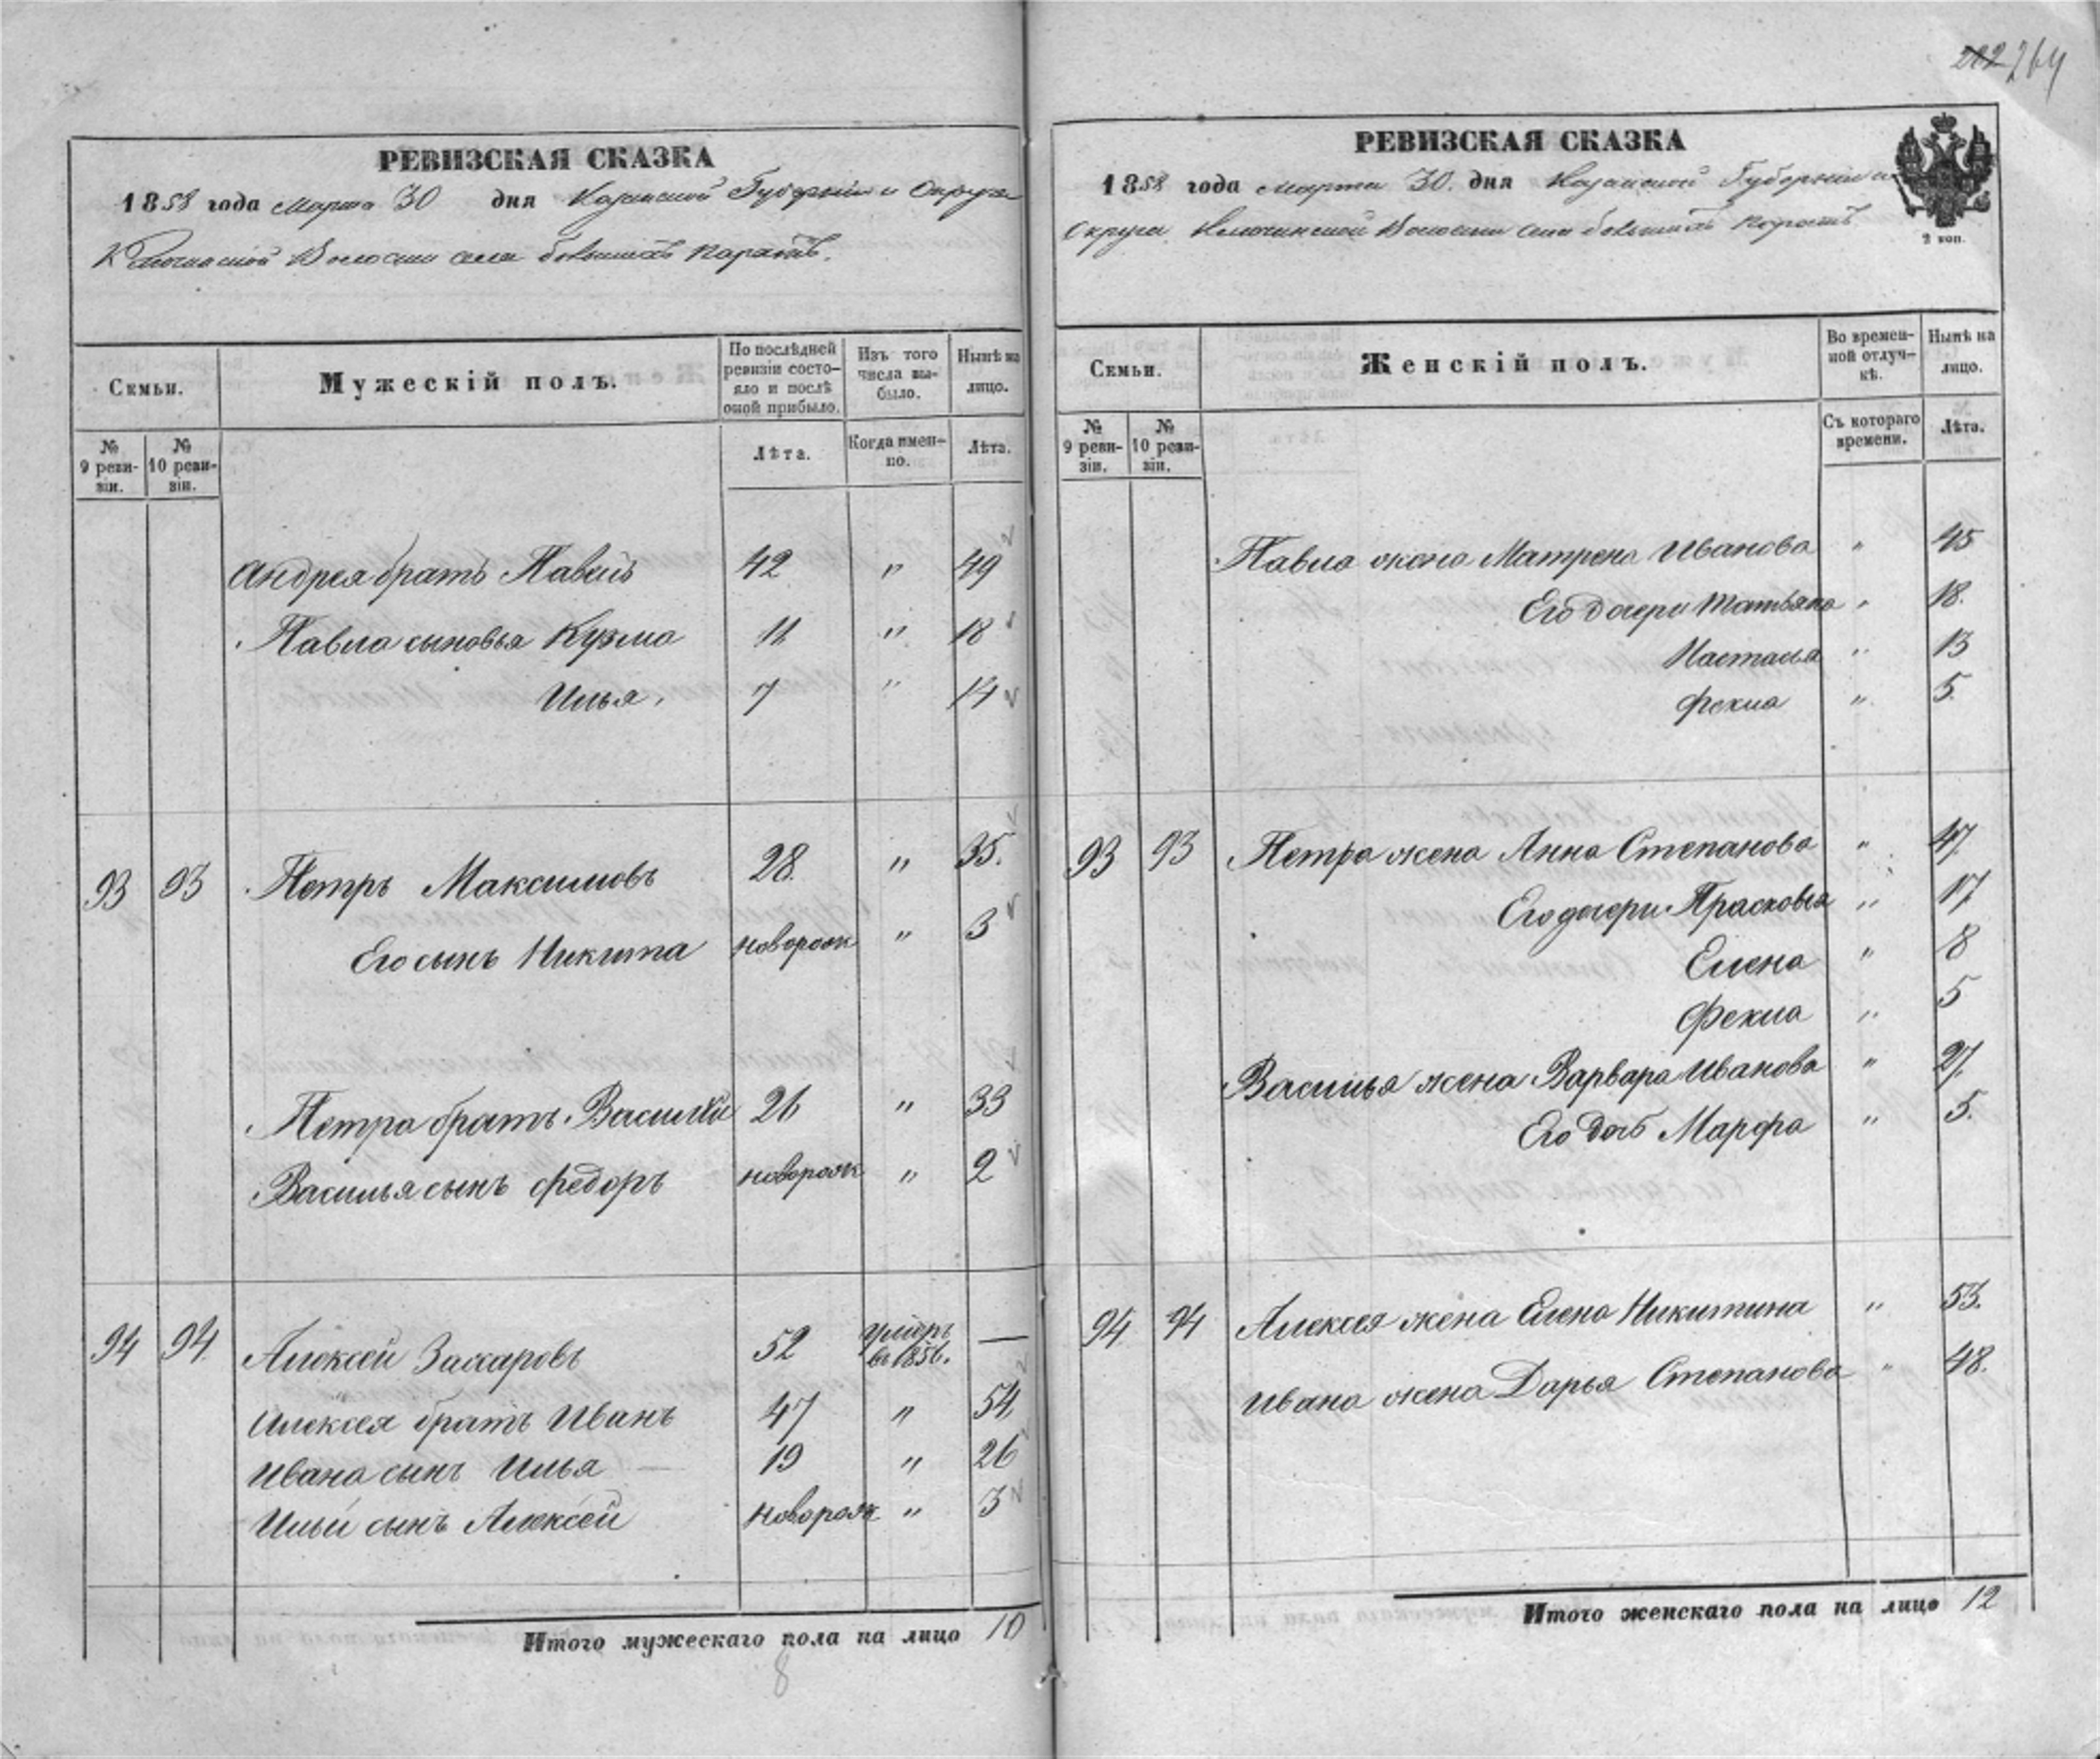 222 264
РЕВИЗСКАЯ СКАЗКА
1858 года Марта 30 дня Казанской Губерніи и Округа
Ключинской Волости села большихъ Каратъ.
Семьи.
Мужескій полъ.
По послѣдней ревизіи состояло и послѣ оной прибыло.
Изъ того числа выбыло.
Нынѣ на лицо.
№ 9 ревизіи.
№ 10 ревизіи.
Лѣта.
Когда именно.
Лѣта.
Андрея братъ Павелъ 42 " 49
Павла сыновья Кузма 11 " 18
Илья. 7 " 14
93 93 Петръ Максимовъ 28. " 35.
Его сынъ Никита новорож " 3
Петра братъ Василій 26 " 33
Василья сынъ Федоръ новорож " 2
94 94 Алексей Захаровъ 52 умеръ въ 1856. —
Алексея братъ Иванъ 47 " 54
Ивана сынъ Илья 19 " 26
Ильи сынъ Алексей новорож " 3
Итого мужескаго пола на лицо 10
8
РЕВИЗСКАЯ СКАЗКА
1858 года марта 30. дня Казанской Губерніи и
Округа Ключинской Волости села большихъ Каратъ
2 коп.
Семьи.
Женскій полъ.
Во временной отлучкѣ.
Нынѣ на лицо.
№ 9 ревизіи.
№ 10 ревизіи.
Съ котораго времени.
Лѣта.
Павла жена Матрена Иванова " 45
Его дочери Татьяна " 18.
Настасья " 13
Фекла " 5.
93 93 Петра жена Анна Степанова " 47.
Его дочери Прасковья " 17.
Елена " 8
Фекла " 5
Василья жена Варвара Иванова " 27.
Его дочь Марфа " 5.
94 94 Алексея жена Елена Никитина " 53.
Ивана жена Дарья Степанова " 48.
Итого женскаго пола на лицо 12